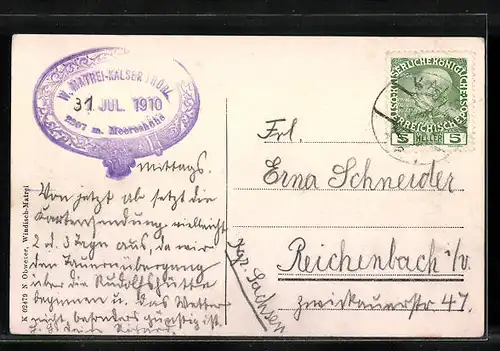 W. MATREI-KALSER THÖRL
31 JUL. 1910
2207 m. Meereshöhe
mittags.
Von jetzt ab setzt die
Kartensendung vielleicht
2 d. 3 Tage aus, da wir
den Tauernübergang
über die Rudolfshütte
beginnen u. das Wetter
nicht besonders günstig ist.
K 02479 N Oblwexer, Windisch-Matrei
KAISERLICHEKÖNIGLICHE
ÖSTERREICHISCHE
5 HELLER 5
Frl.
Erna Schneider
Reichenbach i/v.
Zwickauerstr 47.
Kgr. Sachsen